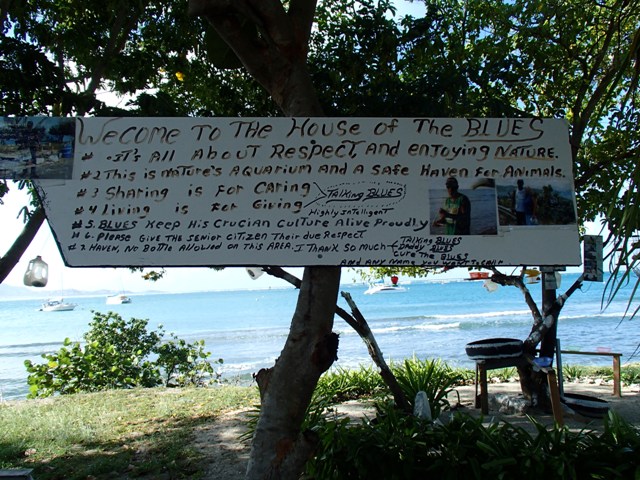 WECOME TO THE HOUSE OF THE BLUES
# 1 IT'S ALL ABOUT RESPECT, AND ENJOYING NATURE.
# 2 THIS IS NATURE'S AQUARIUM AND A SAFE HAVEN FOR ANIMALS.
# 3 SHARING IS FOR CARING
TALKING BLUES
# 4 LIVING IS FOR GIVING
HIGHLY INTELLIGENT
# 5. BLUES KEEP HIS CRUCIAN CULTURE ALIVE PROUDLY
# 6. PLEASE GIVE THE SENIOR CITIZEN THEIR DUE RESPECT
# 7. HAVEN, NO BOTTLE ALLOWED ON THIS AREA. I THANK SO MUCH
TALKING BLUES
DADDY BLUES
CURE THE BLUES
AND ANY NAME YOU WANT